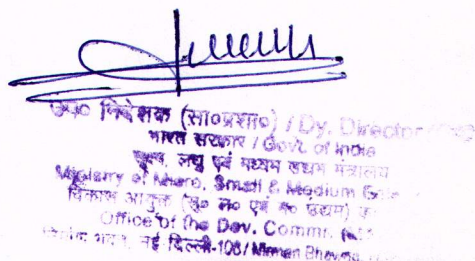 उप निदेशक (सा०प्रशा०) / Dy. Director
भारत सरकार / Govt. of India
सूक्ष्म, लघु एवं मध्यम उद्यम मंत्रालय
Ministry of Micro, Small & Medium
विकास आयुक्त (सू० ल० एवं म० उद्यम) का
Office of the Dev. Commr.
निर्माण भवन, नई दिल्ली-108/ Nirman Bhavan,